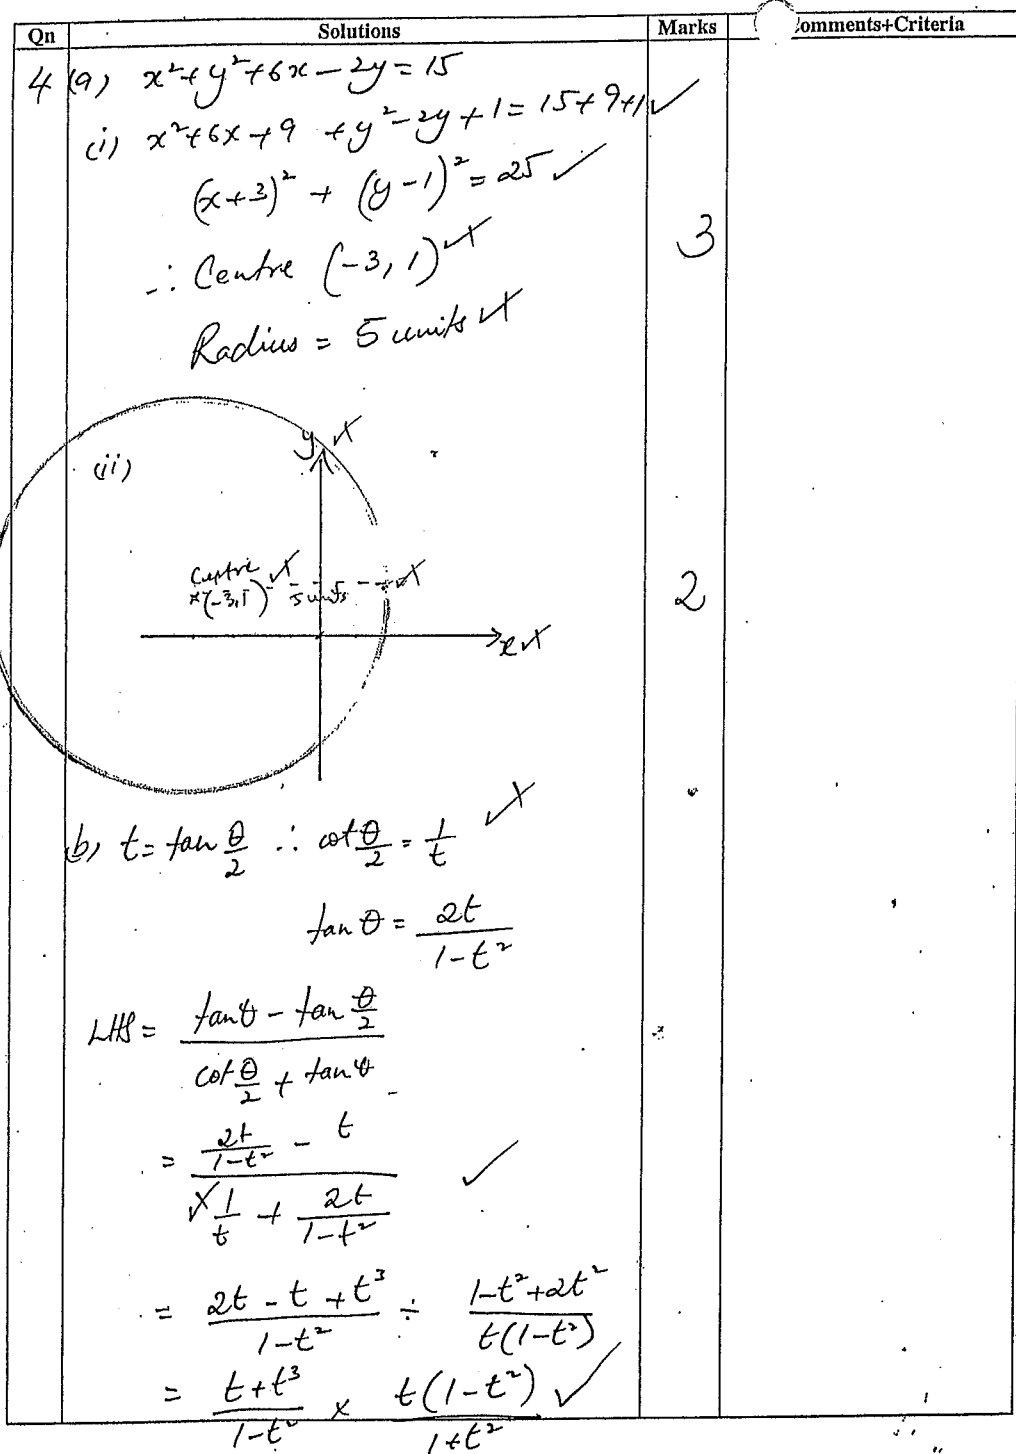 Qn Solutions Marks Comments+Criteria
4 (a) x²+y²+6x-2y=15
(i) x²+6x+9 +y²-2y+1=15+9+1 ✓
(x+3)² + (y-1)²=25 ✓
∴ Centre (-3, 1)
3
Radius = 5 units
y
(ii)
Centre
(-3,1) 5 units
2
x
b) t = tan θ/2 ∴ cot θ/2 = 1/t
tan θ = 2t/(1-t²)
LHS = (tanθ - tan θ/2)/(cot θ/2 + tanθ)
= (2t/(1-t²) - t)/(1/t + 2t/(1-t²)) ✓
= (2t-t+t³)/(1-t²) ÷ (1-t²+2t²)/(t(1-t²))
= (t+t³)/(1-t²) × t(1-t²)/(1+t²) ✓